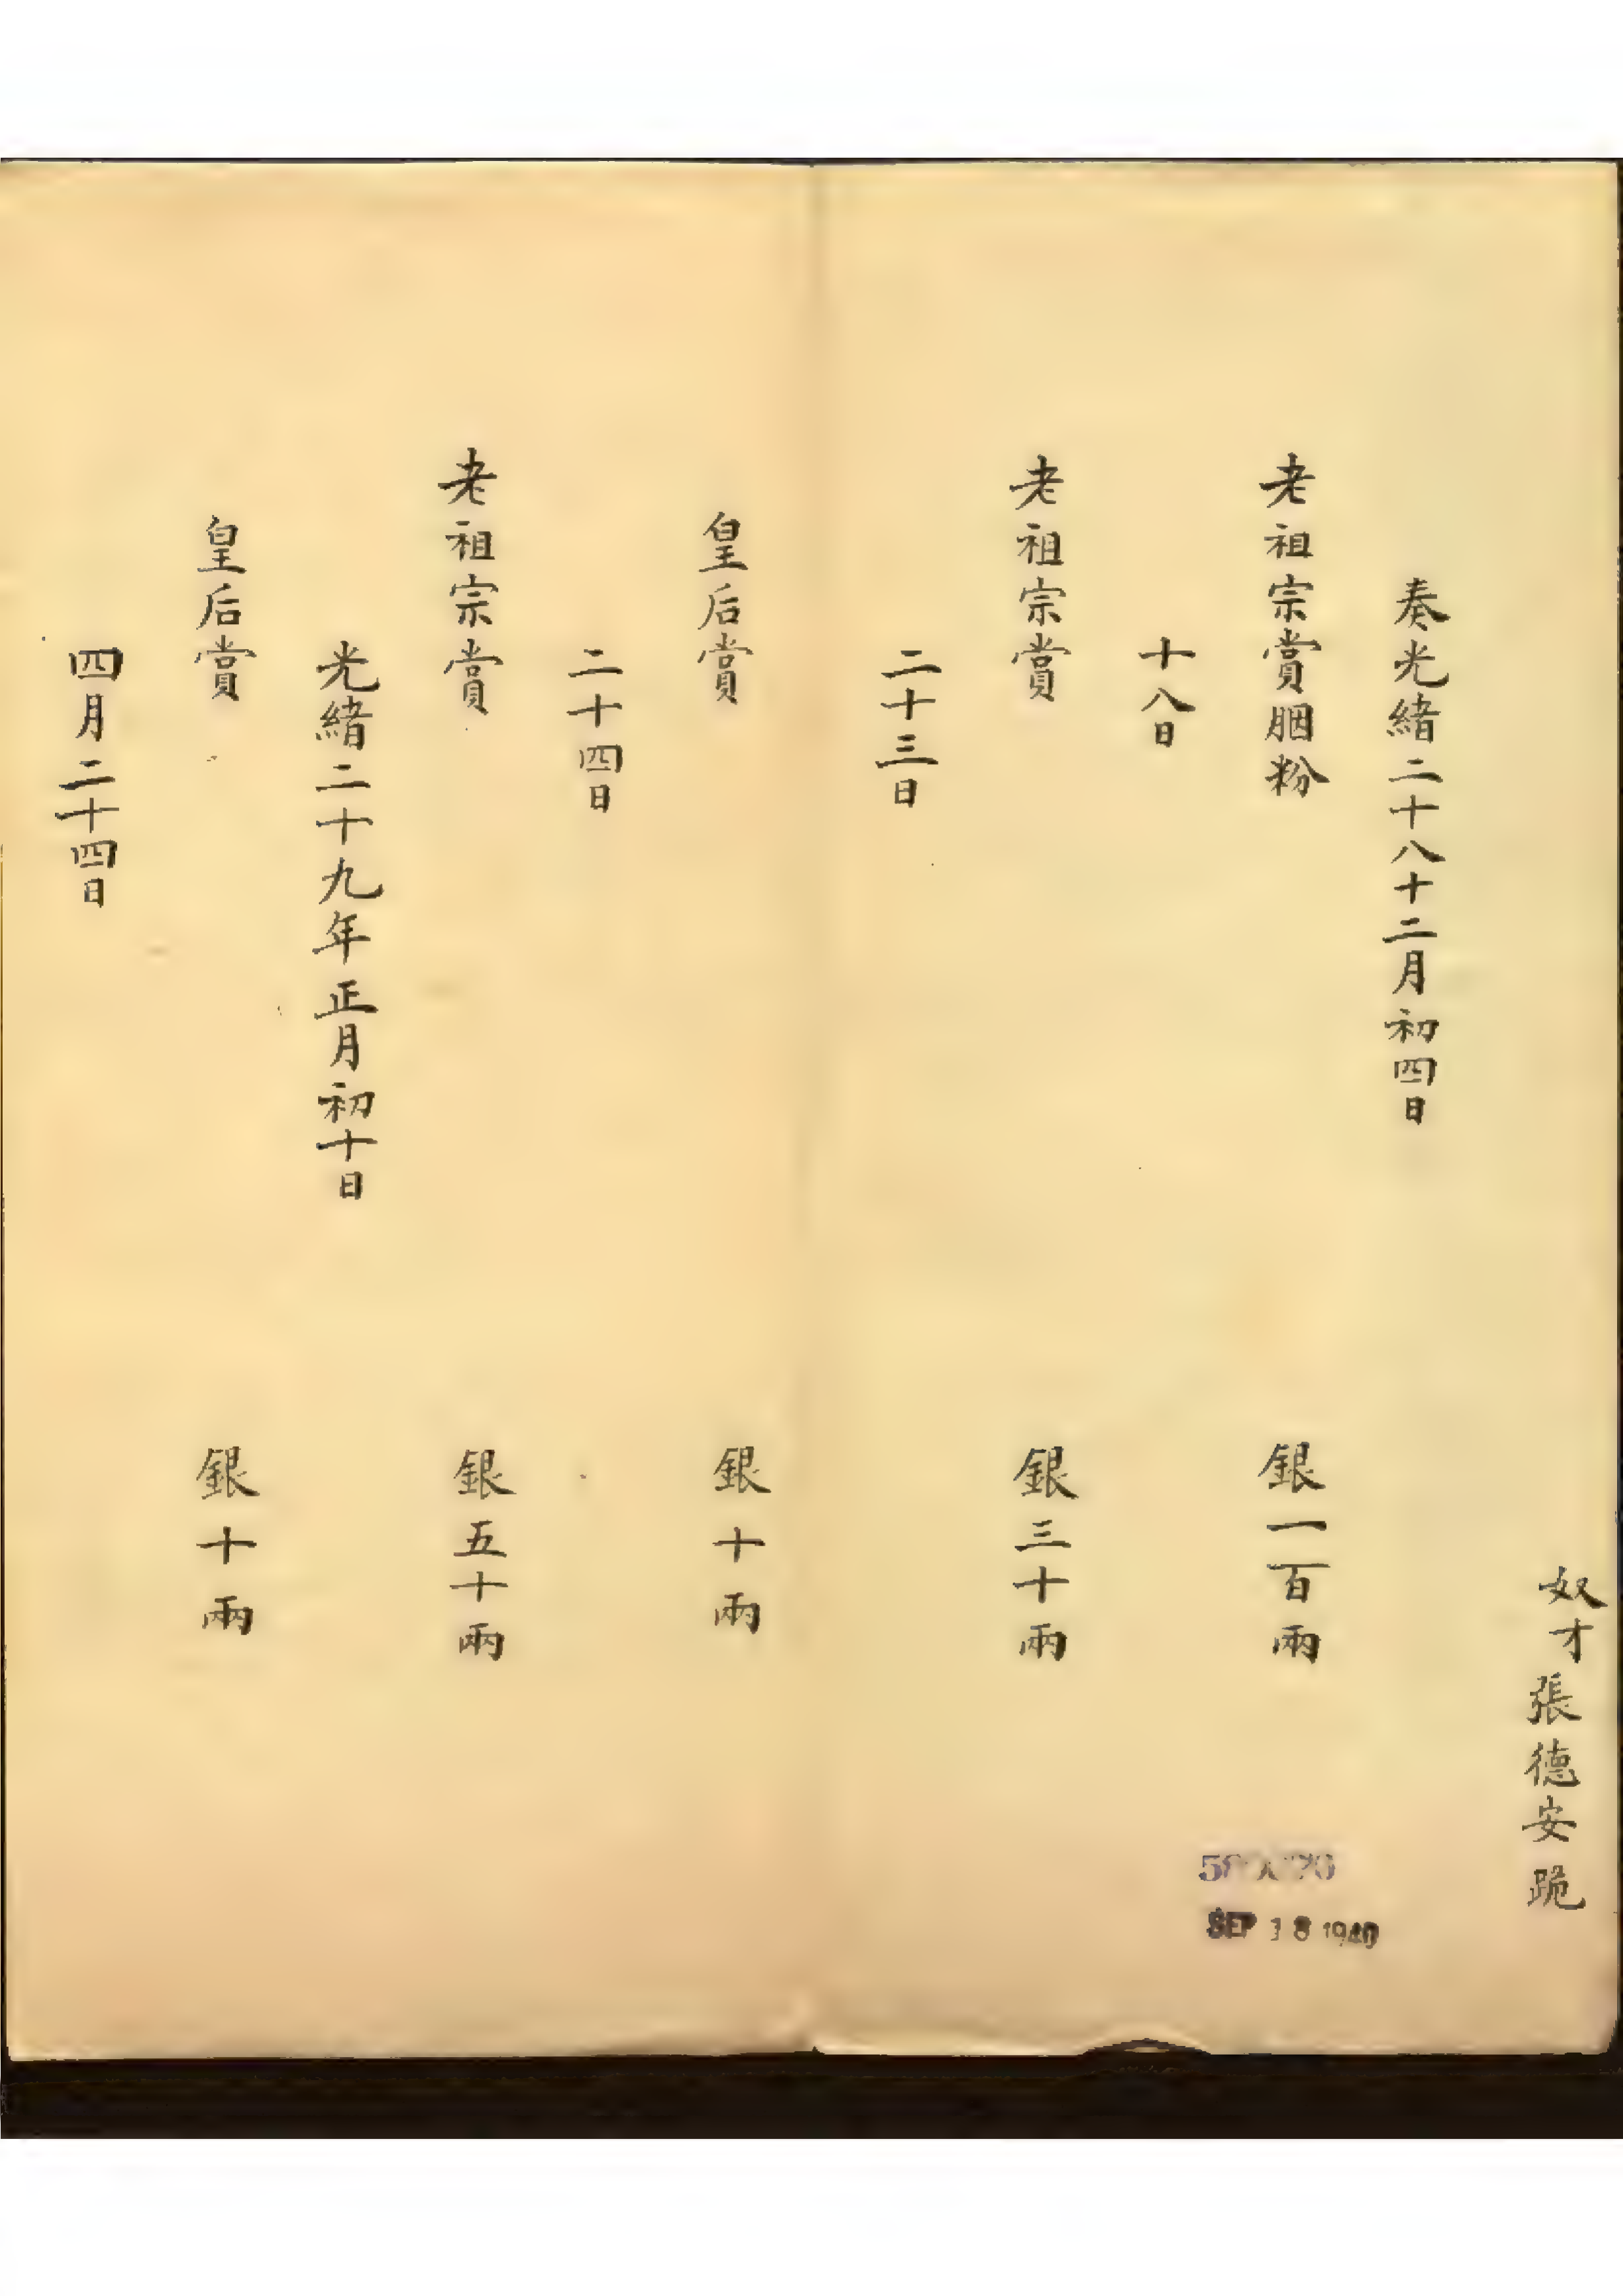 奴才張德安跪
奏光緒二十八十二月初四日
老祖宗賞胭粉 銀一百兩
十八日
老祖宗賞 銀三十兩
二十三日
皇后賞 銀十兩
二十四日
老祖宗賞 銀五十兩
光緒二十九年正月初十日
皇后賞 銀十兩
四月二十四日
SEP 18 1940